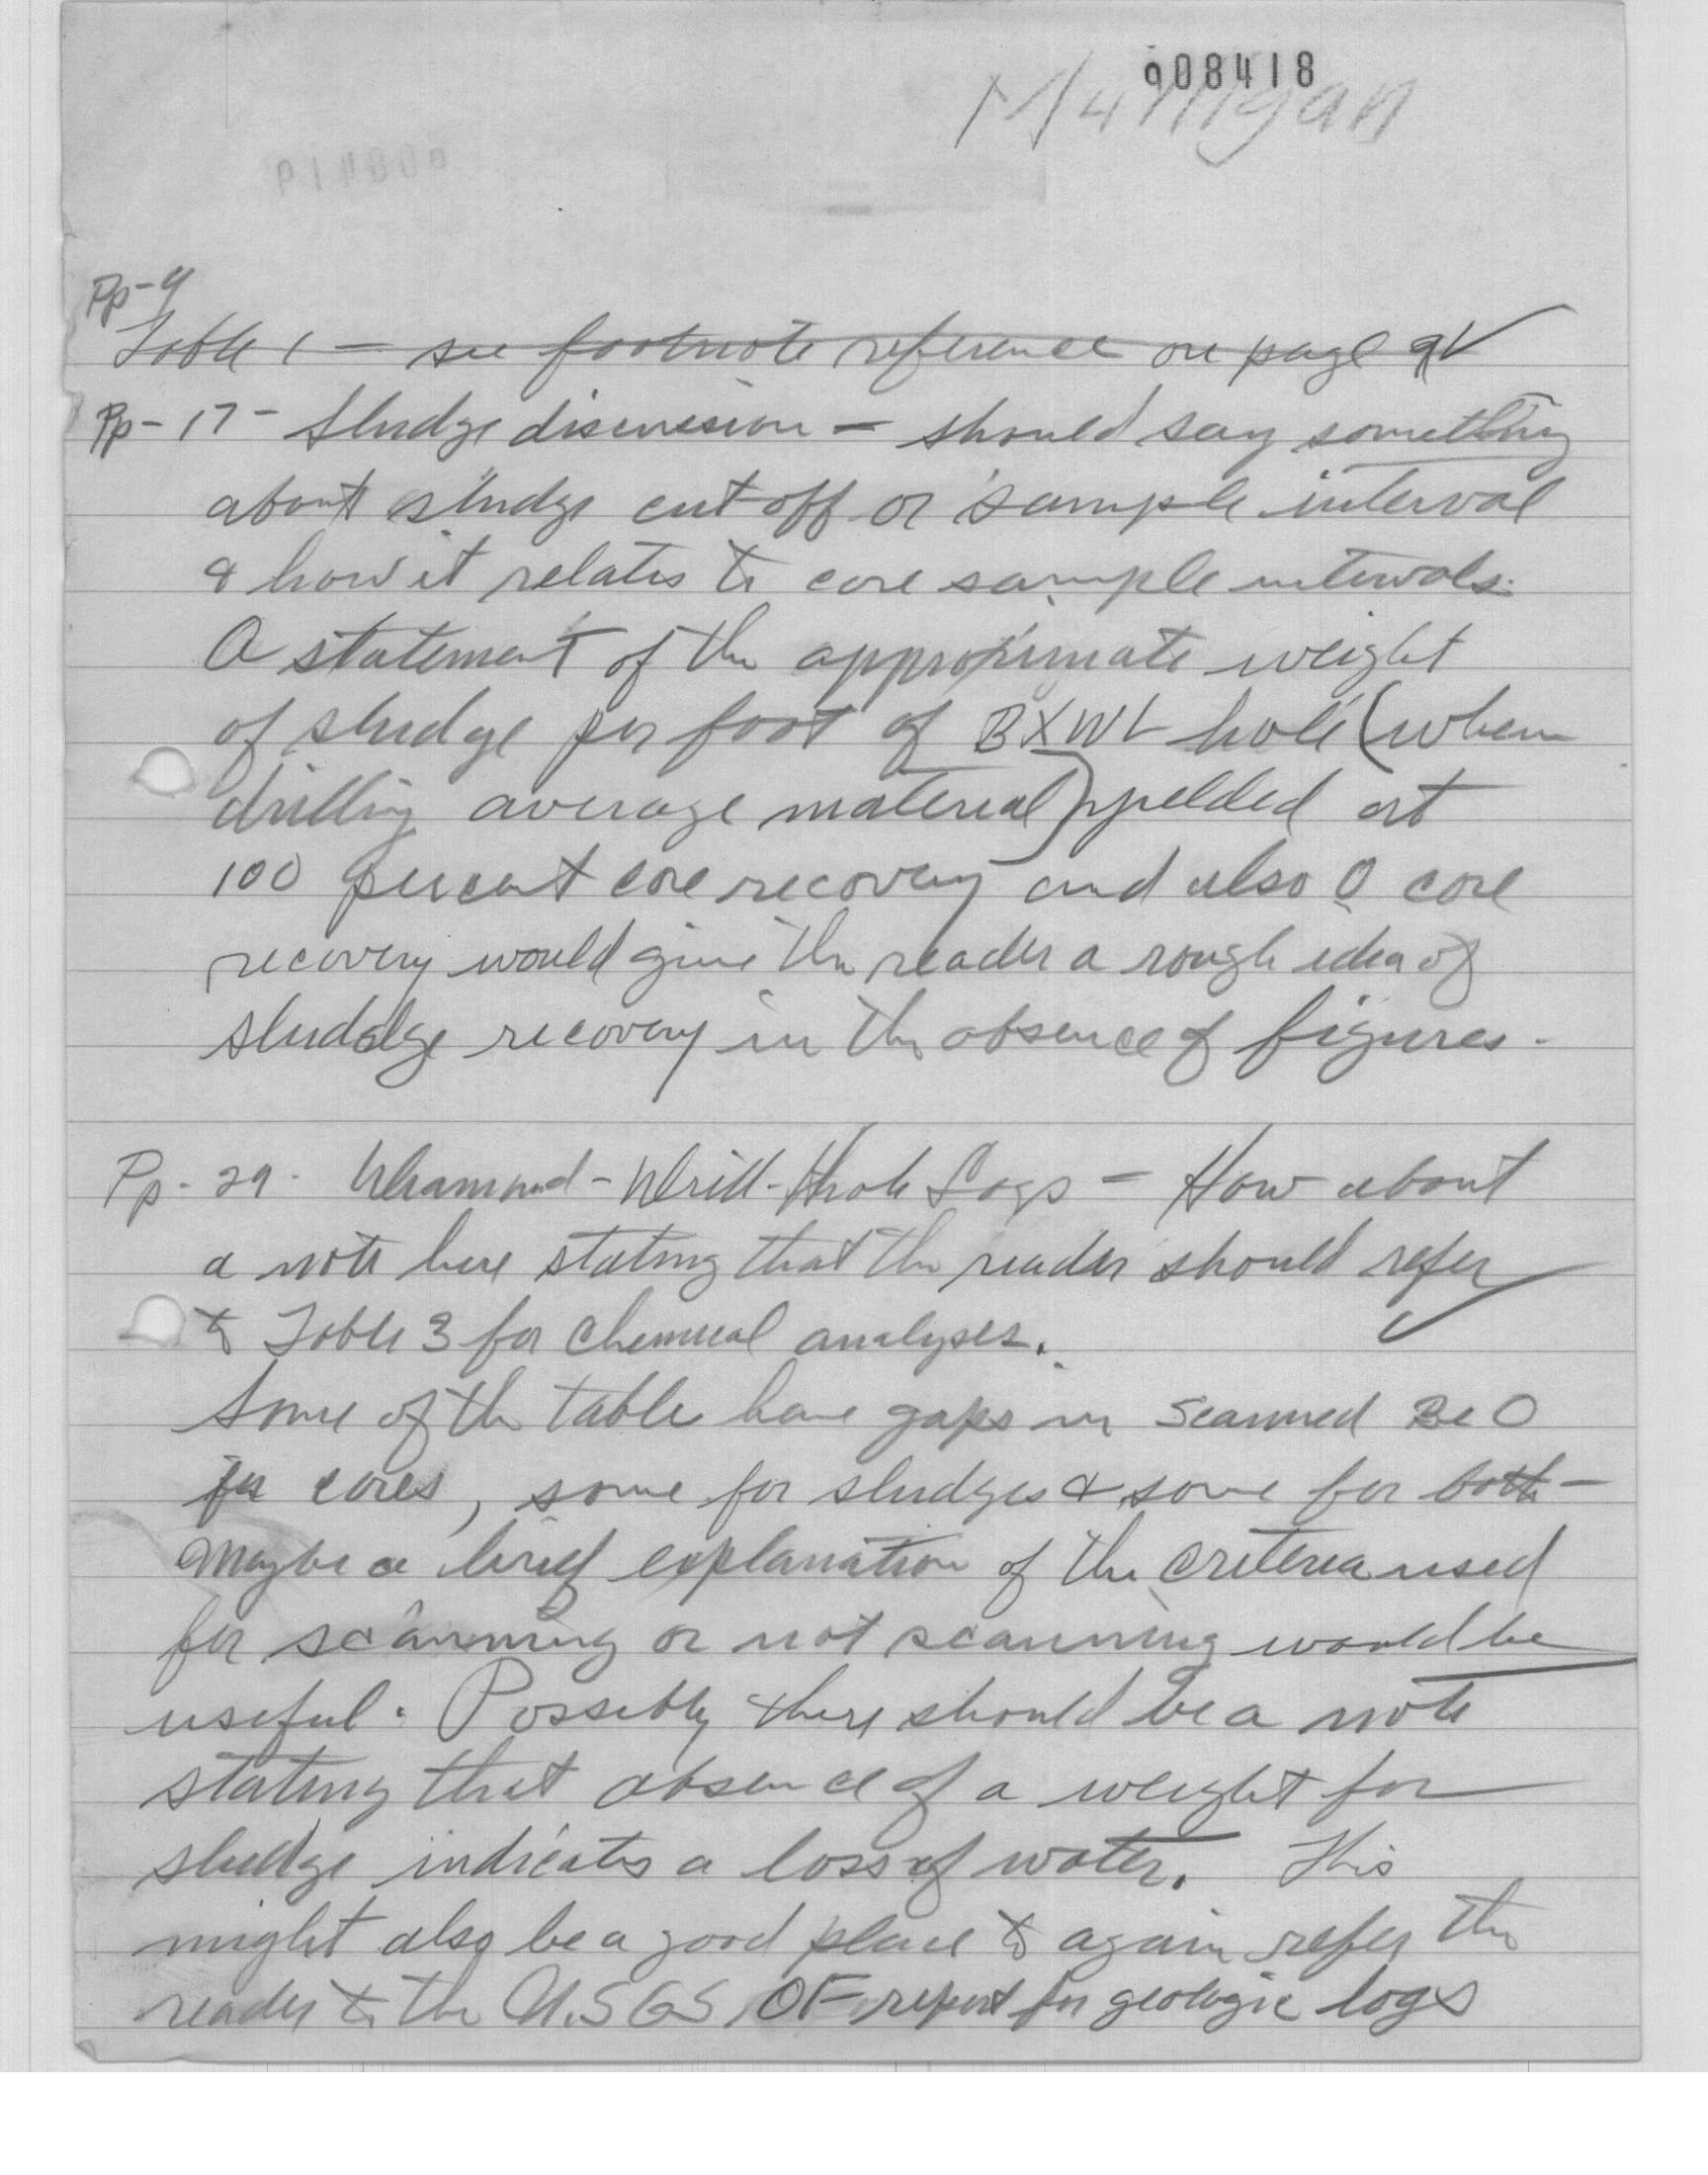 908418
Pp-9
Table 1 - see footnote reference on page 9 ✓
Pp-17- Sludge discussion - should say something
about sludge cut off or sample interval
& how it relates to core sample intervals.
A statement of the approximate weight
of sludge per foot of BXWL hole (when
drilling average material) yielded at
100 percent core recovery and also 0 core
recovery would give the reader a rough idea of
sludge recovery in the absence of figures.
Pp-29. Diamond-Drill-Hole Logs - How about
a note here stating that the reader should refer
to Table 3 for chemical analyses. ✓
Some of the table have gaps in scanned BeO
for cores, some for sludges & some for both -
Maybe a brief explanation of the criteria used
for scanning or not scanning would be
useful. Possibly there should be a note
stating that absence of a weight for
sludge indicates a loss of water. This
might also be a good place to again refer the
reader to the U.S.G.S. OF report for geologic logs